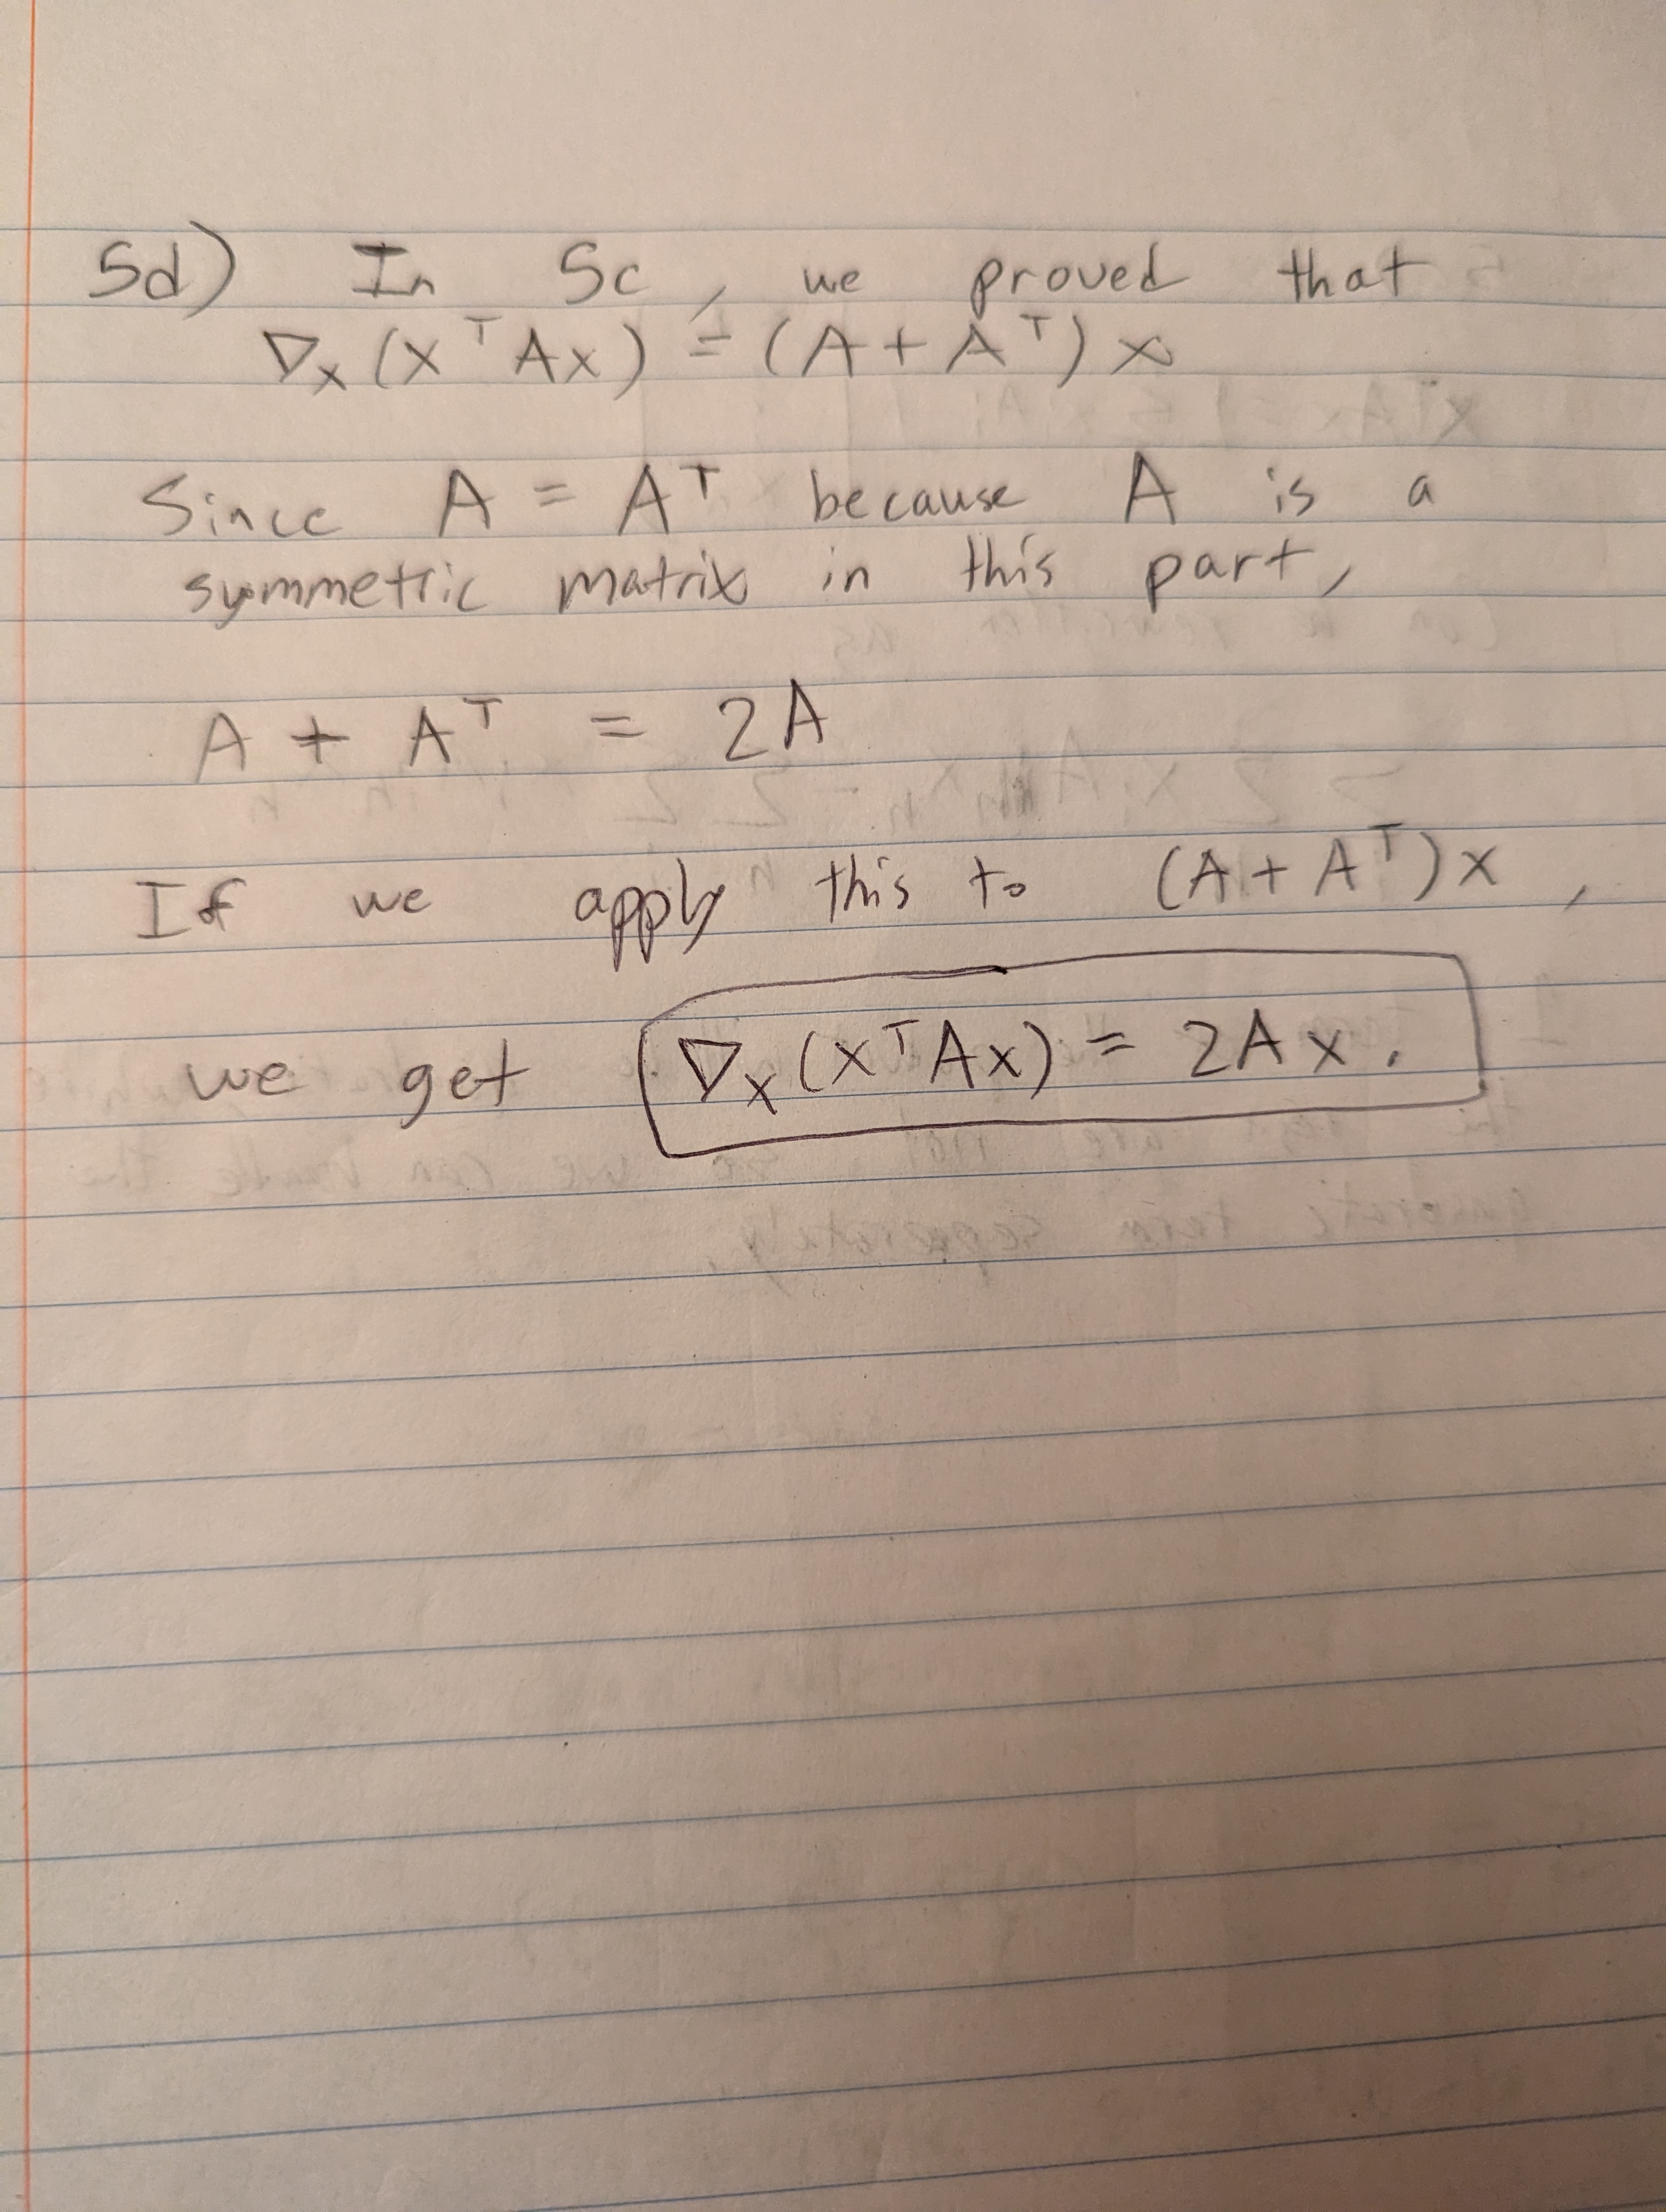 5d) In 5c, we proved that
∇ₓ(xᵀAx) = (A + Aᵀ)x
Since A = Aᵀ because A is a
symmetric matrix in this part,
A + Aᵀ = 2A
If we apply this to (A + Aᵀ)x,
we get ∇ₓ(xᵀAx) = 2Ax.